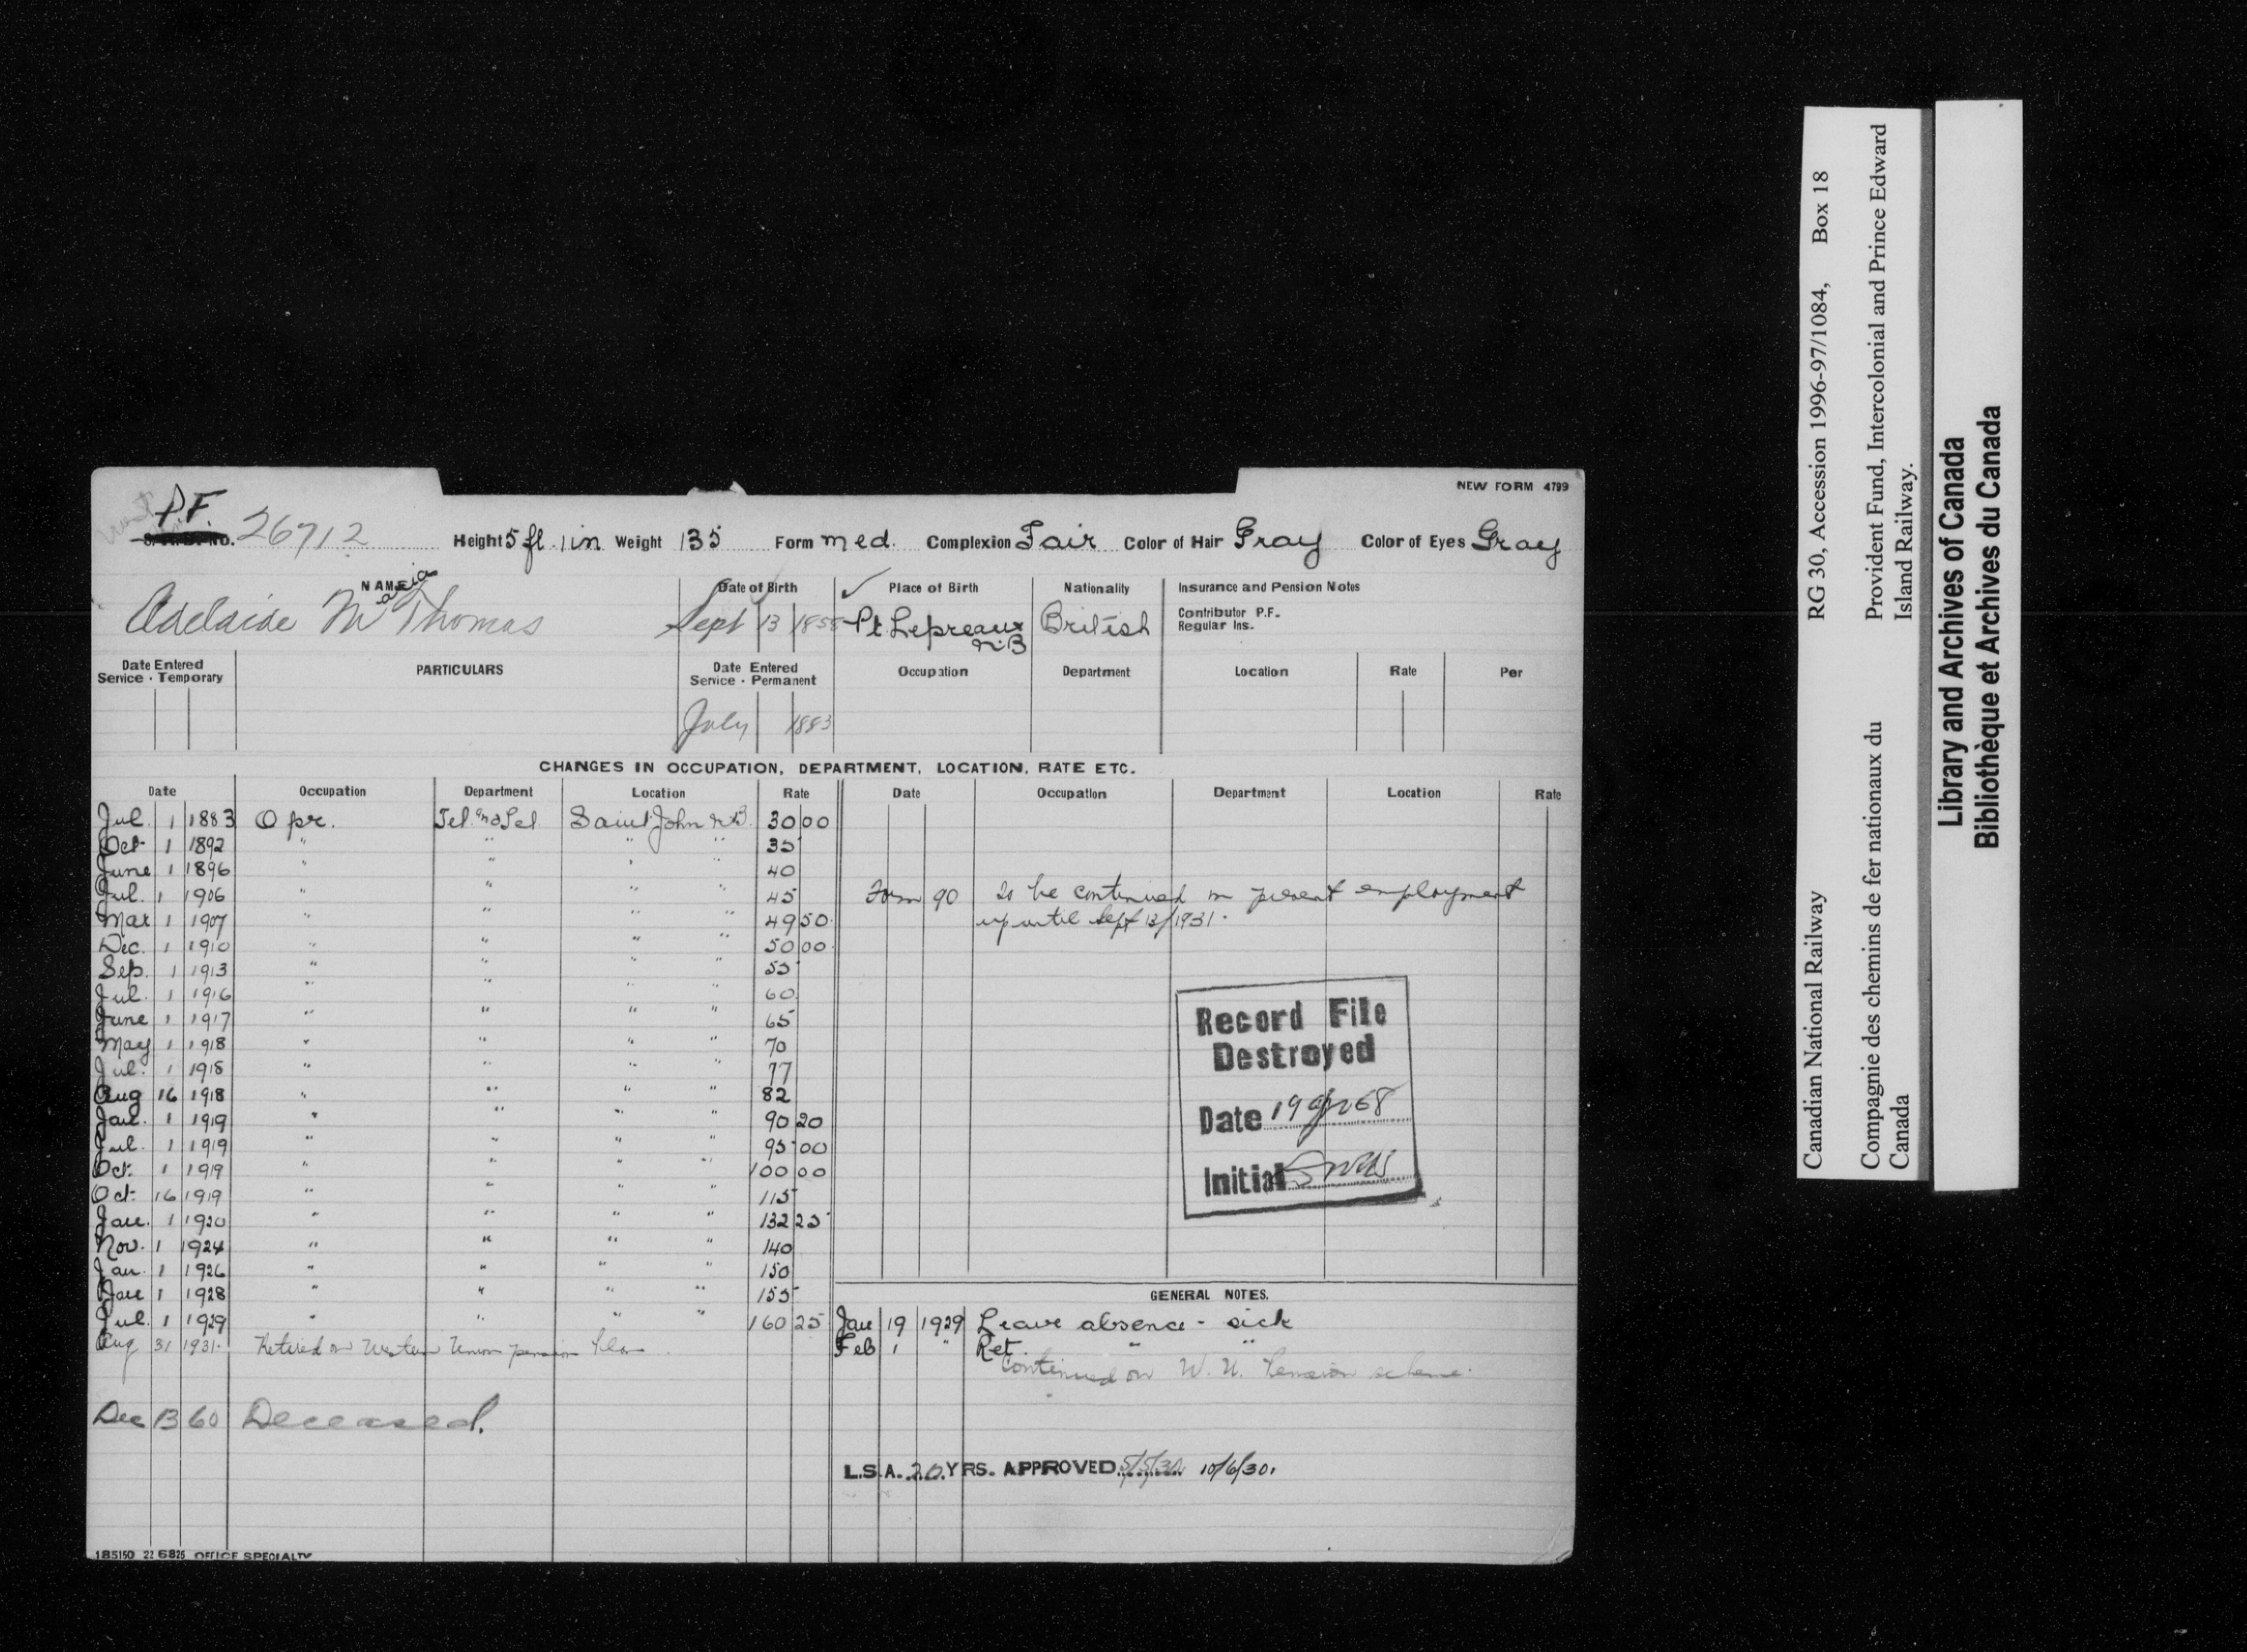 NEW FORM 4799
P.F.
No. 26712 Height 5 ft. 1 in Weight 135 Form med. Complexion Fair Color of Hair Gray Color of Eyes Gray
NAME Date of Birth ✓ Place of Birth Nationality Insurance and Pension Notes
Adelaide Maria Thomas Sept 13 1855 Pt. Lepreaux N.B British Contributor P.F.
Regular Ins.
Date Entered Service - Temporary PARTICULARS Date Entered Service - Permanent Occupation Department Location Rate Per
July 1883
CHANGES IN OCCUPATION, DEPARTMENT, LOCATION, RATE ETC.
Date Occupation Department Location Rate Date Occupation Department Location Rate
Jul. 1 1883 Opr. Tel. and Tel. Saint John N.B. 30 00
Oct 1 1892 " " " " 35
June 1 1896 " " " 40
Jul. 1 1906 " " " " 45
Mar 1 1907 " " " " 49 50
Dec. 1 1910 " " " " 50 00
Sep. 1 1913 " " " " 55
Jul. 1 1916 " " " " 60
June 1 1917 " " " " 65
May 1 1918 " " " " 70
Jul. 1 1918 " " " " 77
Aug 16 1918 " " " " 82
Jan. 1 1919 " " " " 90 20
Jul. 1 1919 " " " " 95 00
Oct. 1 1919 " " " " 100 00
Oct. 16 1919 " " " " 115
Jan. 1 1920 " " " " 132 25
Nov. 1 1924 " " " " 140
Jan. 1 1926 " " " " 150
Jan 1 1928 " " " " 155
Jul. 1 1929 " " " " 160 25
Aug 31 1931. Retired on Western Union pension Plan
Dec 13 60 Deceased.
Form 90 To be continued in present employment
up until Sept 13/1931.
Record File
Destroyed
Date 19 68
Initial
GENERAL NOTES.
Jan 19 1929 Leave absence - sick
Feb 1 " Ret. " "
Continued on W. U. Pension scheme.
L.S.A. 20 YRS. APPROVED 5/5/30 10/6/30.
185150 22 6825 OFFICE SPECIALTY
Canadian National Railway RG 30, Accession 1996-97/1084, Box 18
Compagnie des chemins de fer nationaux du Canada
Provident Fund, Intercolonial and Prince Edward Island Railway.
Library and Archives of Canada
Bibliothèque et Archives du Canada